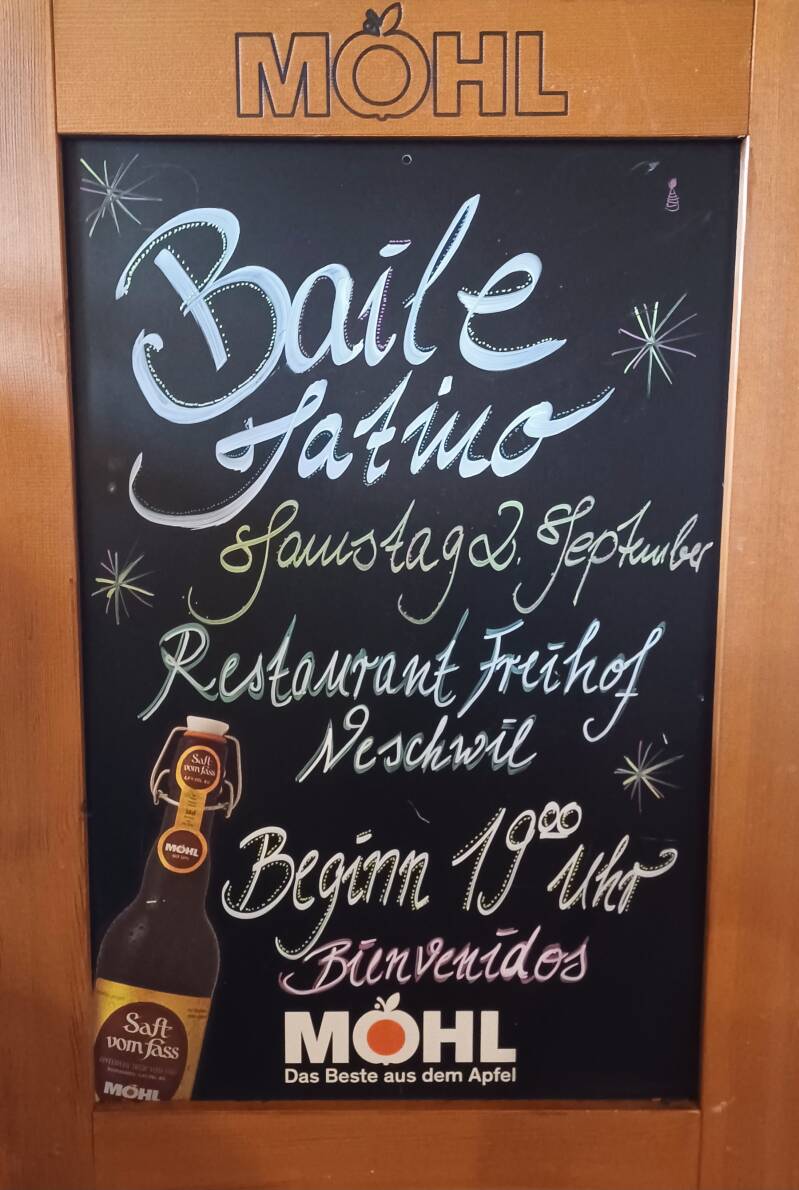 MÖHL
Baile
Latino
Samstag 2. September
Restaurant Freihof
Neschwil
Beginn 19⁰⁰ Uhr
Bienvenidos
Saft
vom fass
MÖHL
Saft
vom fass
MÖHL
MÖHL
Das Beste aus dem Apfel